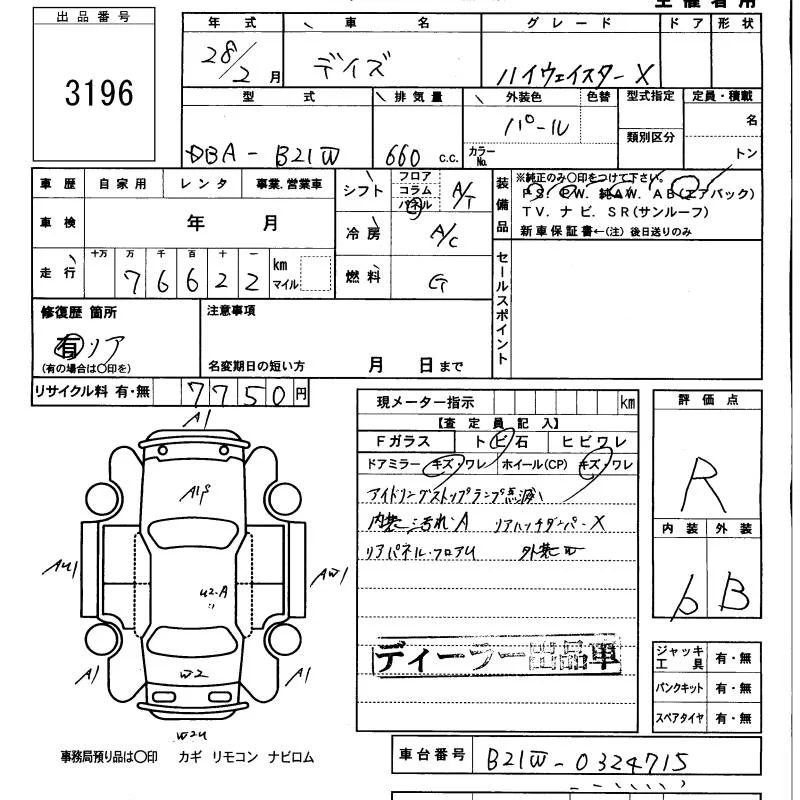 出品番号
3196
年式 車名 グレード ドア 形状
28/2月 デイズ ハイウェイスターX
型式 排気量 外装色 色替 型式指定 定員・積載
DBA-B21W 660 c.c. パール 名
カラーNo. 類別区分 トン
車歴 自家用 レンタ 事業.営業車
車検 年 月
走行 十万 万 千 百 十 一 km マイル
7 6 6 2 2
シフト フロア コラム パネル A/T
冷房 A/C
燃料 G
装備品 ※純正のみ〇印をつけて下さい。
PS. PW. 純AW. AB(エアバック)
TV. ナビ. SR(サンルーフ)
新車保証書←(注) 後日送りのみ
セールスポイント
修復歴 箇所
有 リア
(有の場合は〇印を)
注意事項
名変期日の短い方 月 日まで
リサイクル料 有・無 7750円
現メーター指示 km
【査定員記入】
Fガラス トビ石 ヒビワレ
ドアミラー キズ・ワレ ホイール(CP) キズ・ワレ
アイドリングストップランプ点滅
内装汚れA リアハッチダンパーX
リアパネル・フロアU 外装W
ディーラー出品車
評価点
R
内装 外装
b B
ジャッキ工具 有・無
パンクキット 有・無
スペアタイヤ 有・無
A1
A1S
AU1
U2-A
AW1
A1
W2
A1
W2U
事務局預り品は〇印 カギ リモコン ナビロム
車台番号 B21W-0324715